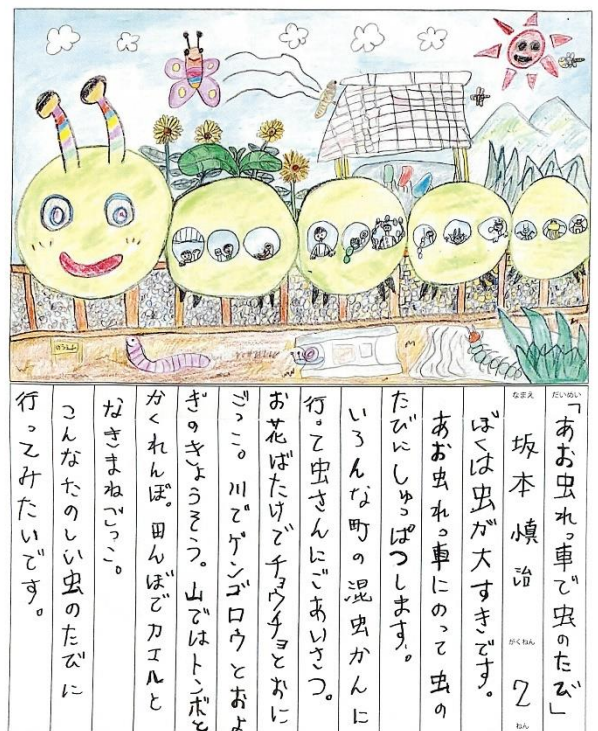 だいめい
「あお虫れっ車で虫のたび」
なまえ
坂本慎治
がくねん
2
ねん
ぼくは虫が大すきです。
あお虫れっ車にのって虫の
たびにしゅっぱつします。
いろんな町の混虫かんに
行って虫さんにごあいさつ。
お花ばたけでチョウチョとおに
ごっこ。川でゲンゴロウとおよ
ぎのきょうそう。山ではトンボと
かくれんぼ。田んぼでカエルと
なきまねごっこ。
こんなたのしい虫のたびに
行ってみたいです。